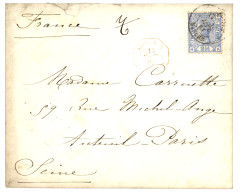 France
Madame Carruette
59 Rue Michel-Ange
Auteuil-Paris
Seine